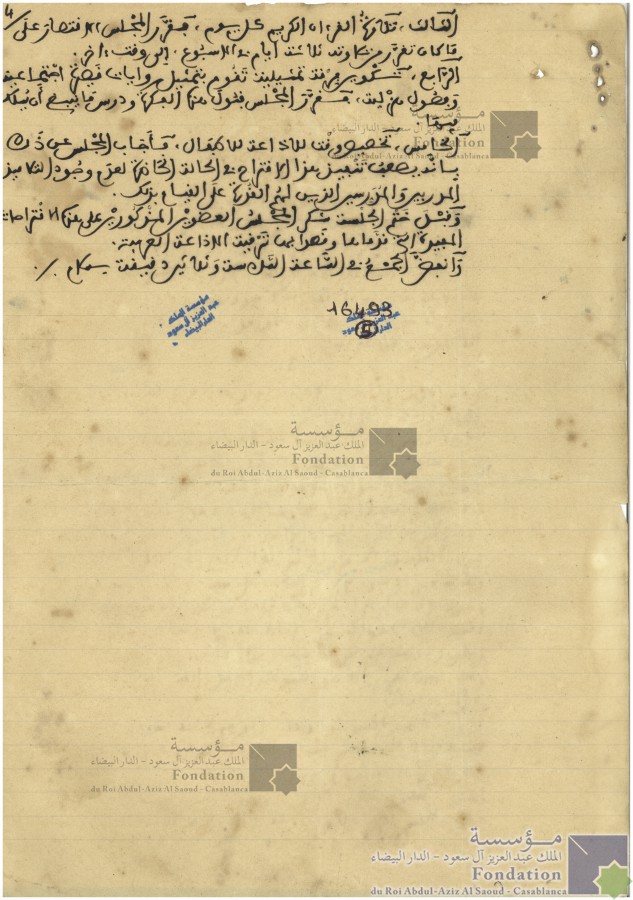 4/
الثالث، تلاوة القرءان الكريم كل يوم، فقرر المجلس الاقتصار على
ما كان تقرر من تلاوته ثلاثة أيام في الاسبوع، إلى وقت ءاخر.
الرابع، تكوين فرقة تمثيلية تقوم بتمثيل روايات قيمة اجتماعية
وفصول هزلية، فقرر المجلس قبول هذه الفكرة ودرس ما ينبغي أن
فيها
الخامس، تخصيص وقت للاذاعة للاطفال، فأجاب المجلس عن ذلك
بأنه يصعب تنفيذ هذا الاقتراح في الحالة الحاضرة لعدم وجود التلاميذ
المدربين والمدرسين الذين لهم القدرة على القيام بذلك.
وقبل ختم الجلسة شكر المجلس العضوين المذكورين على هذه الاقتراحات
المفيدة التي قدماها وقصدا بها ترقية الاذاعة العربية.
وانفض الجمع في الساعة السادسة وثلاثين دقيقة بسلام ./.
16493
5
مؤسسة الملك
عبد العزيز آل سعود
الدار البيضاء
مؤسسة الملك
عبد العزيز آل سعود
الدار البيضاء
مؤسسة
الملك عبد العزيز آل سعود - الدار البيضاء
Fondation
du Roi Abdul-Aziz Al Saoud - Casablanca
مؤسسة
الملك عبد العزيز آل سعود - الدار البيضاء
Fondation
du Roi Abdul-Aziz Al Saoud - Casablanca
مؤسسة
الملك عبد العزيز آل سعود - الدار البيضاء
Fondation
du Roi Abdul-Aziz Al Saoud - Casablanca
مؤسسة
الملك عبد العزيز آل سعود - الدار البيضاء
Fondation
du Roi Abdul-Aziz Al Saoud - Casablanca